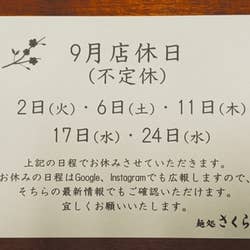 9月店休日
(不定休)
2日(火)・6日(土)・11日(木)
17日(水)・24日(水)
上記の日程でお休みさせていただきます。
お休みの日程はGoogle、Instagramでも広報しますので、
そちらの最新情報でもご確認いただけます。
宜しくお願いいたします。
麺処 さくら